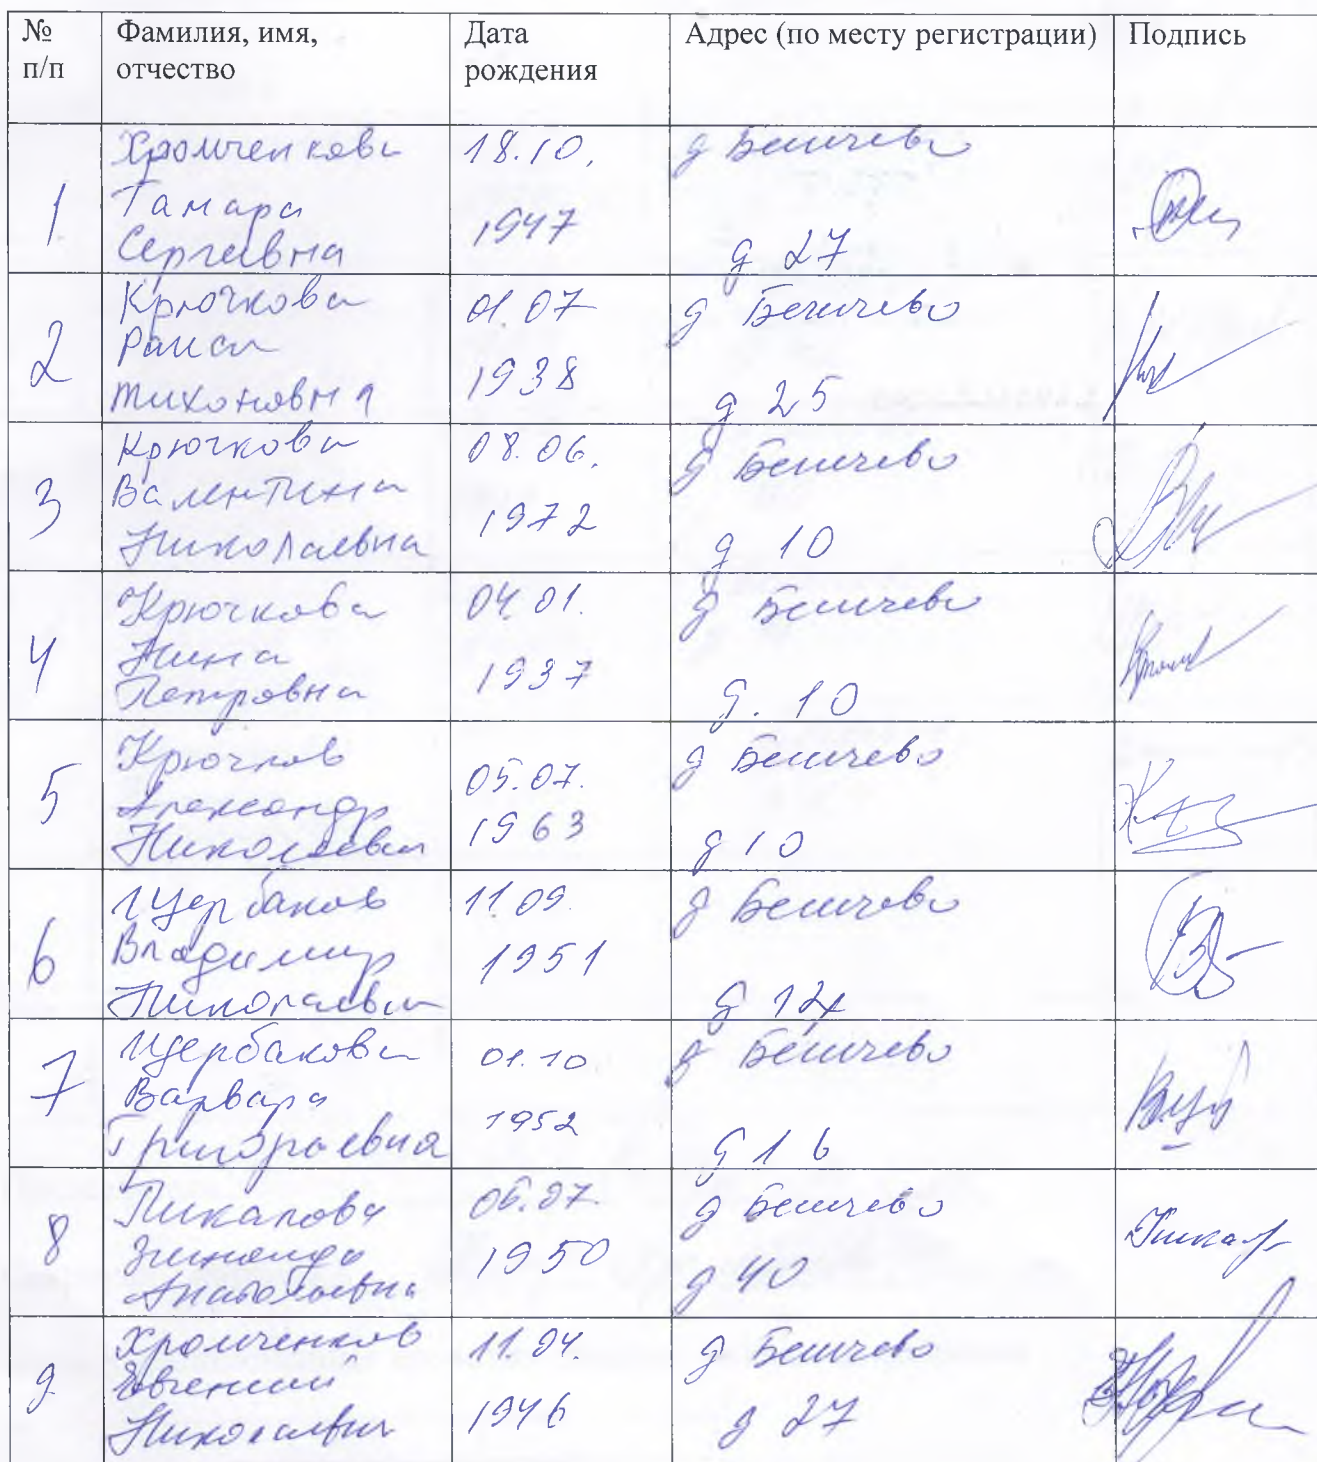 № п/п
Фамилия, имя, отчество
Дата рождения
Адрес (по месту регистрации)
Подпись
1
Хромченкова
Тамара
Сергеевна
18.10.
1947
д Бешчево
д 27
2
Крючкова
Раиса
Тихоновна
01.07
1938
д Бешчево
д 25
3
Крючкова
Валентина
Николаевна
08.06.
1972
д Бешчево
д 10
4
Крючкова
Нина
Петровна
04.01.
1937
д Бешчево
д. 10
5
Крючков
Александр
Николаевич
05.07.
1963
д Бешчево
д 10
6
Щербаков
Владимир
Николаевич
11.09.
1951
д Бешчево
д
7
Щербакова
Варвара
Григорьевна
01.10
1952
д Бешчево
д 16
8
Пикалова
Зинаида
Анатольевна
06.07.
1950
д Бешчево
д 40
9
Хромченков
Евгений
Николаевич
11.04.
1946
д Бешчево
д 27